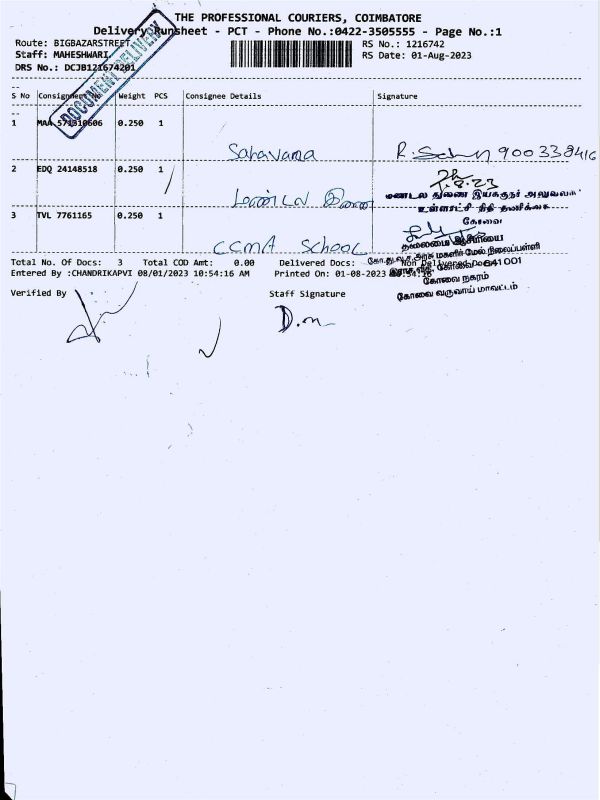 THE PROFESSIONAL COURIERS, COIMBATORE
Delivery Runsheet - PCT - Phone No.:0422-3505555 - Page No.:1
Route: BIGBAZARSTREET
RS No.: 1216742
Staff: MAHESHWARI
RS Date: 01-Aug-2023
DRS No.: DCJB121674201
DOCUMENT DELIVERY
S No Consignment No Weight PCS Consignee Details Signature
1 MAA 571310606 0.250 1
Sahavama
2 EDQ 24148518 0.250 1
மண்டல துணை இயக்குநர் அலுவலக
உள்ளாட்சி நிதி தணிக்கை
கோவை
3 TVL 7761165 0.250 1
CCMA School
தலைமை ஆசிரியை
மகளிர் மேல் நிலைப்பள்ளி
Total No. Of Docs: 3 Total COD Amt: 0.00 Delivered Docs: Non Delivered Docs:
641001
Entered By :CHANDRIKAPVI 08/01/2023 10:54:16 AM Printed On: 01-08-2023 10:54:16
கோவை நகரம்
கோவை வருவாய் மாவட்டம்
Verified By Staff Signature